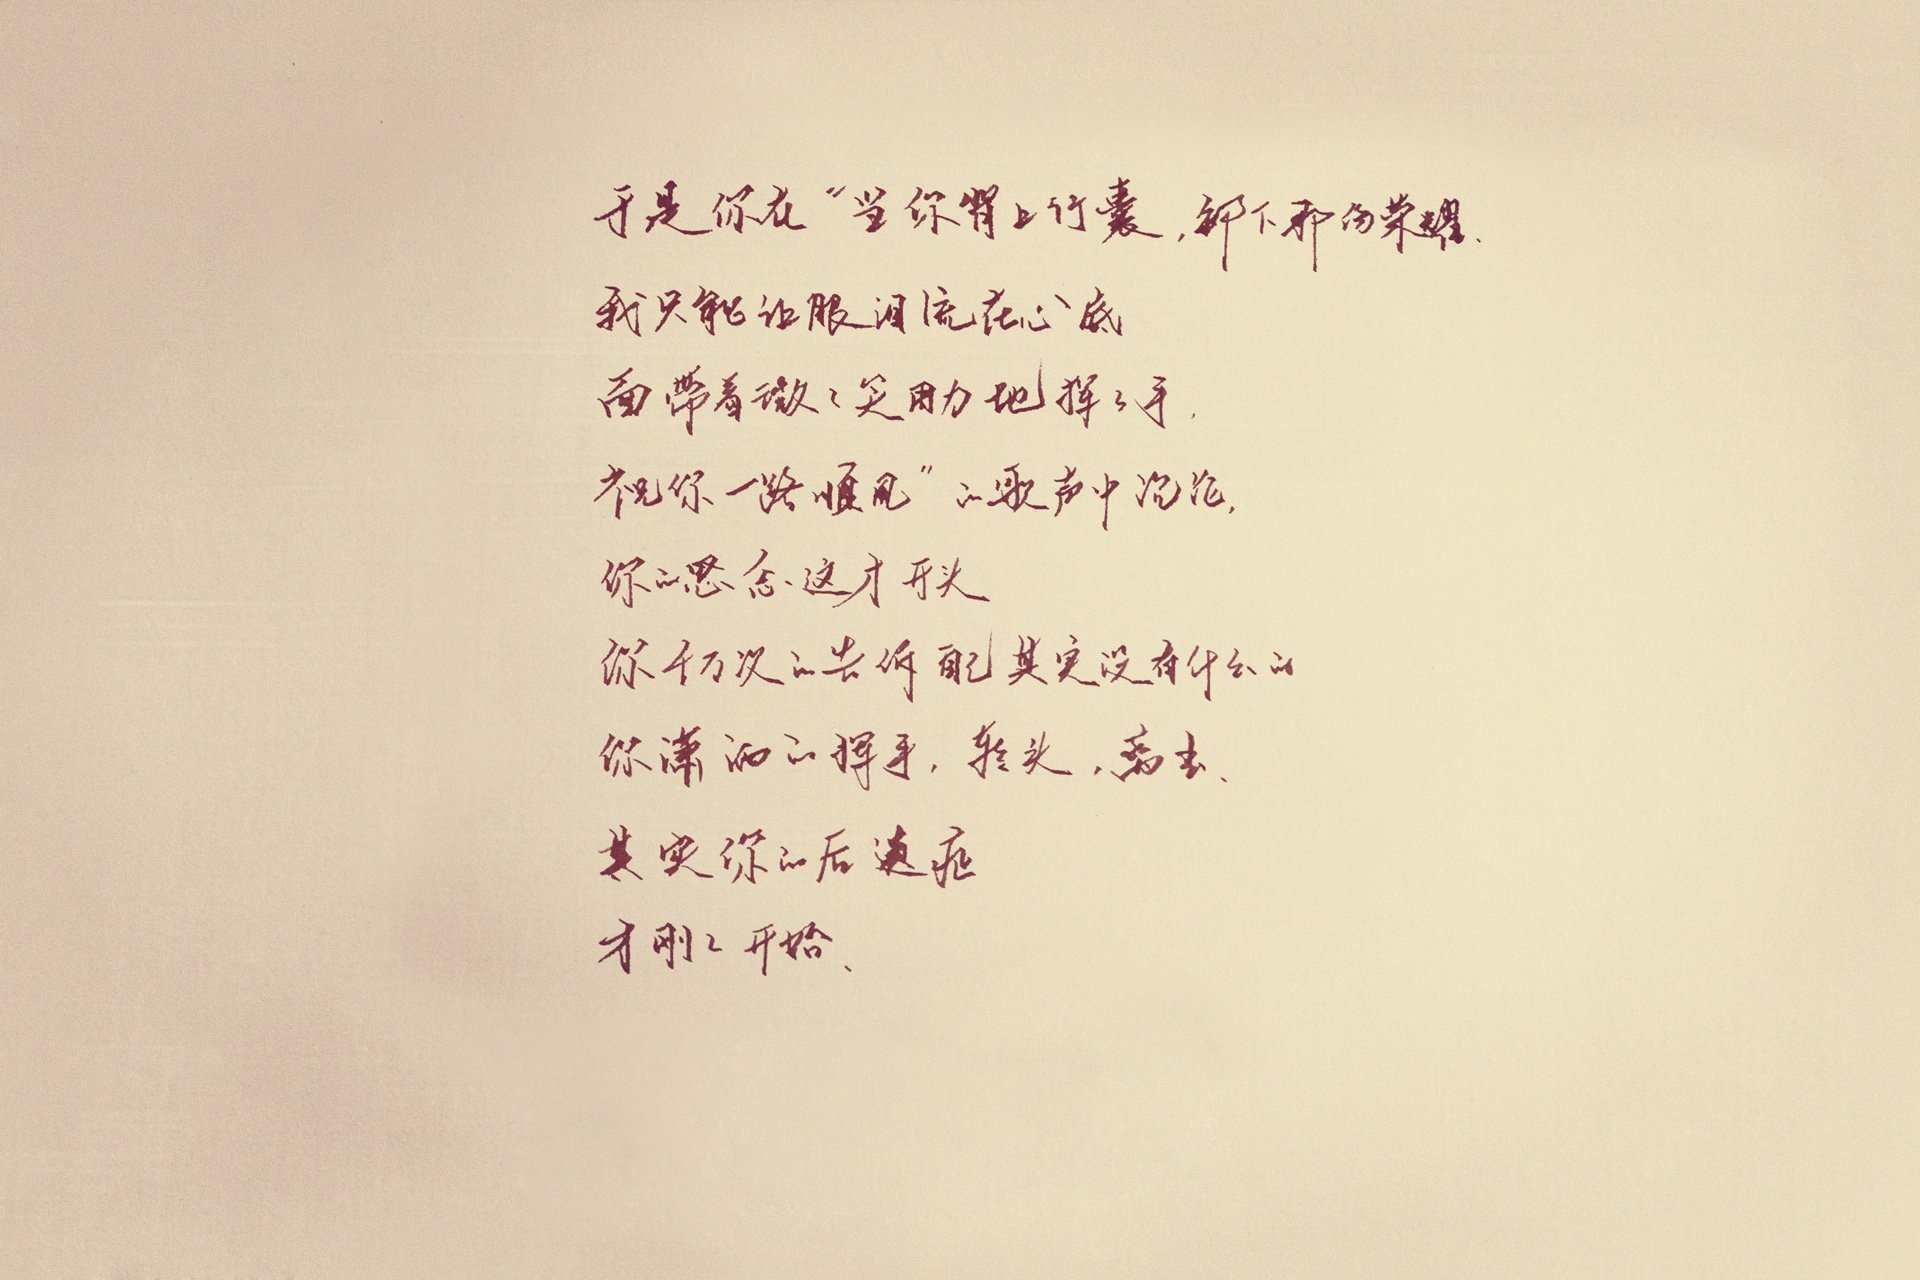 于是你在“当你背上行囊,卸下那份荣耀、
我只能让眼泪流在心底
面带着微々笑用力地挥々手,
祝你一路顺风”的歌声中沉沦,
你的思念这才开头
你千万次的告诉自己其实没有什么的
你潇洒的挥手,转头,离去、
其实你的后遗症
才刚々开始、